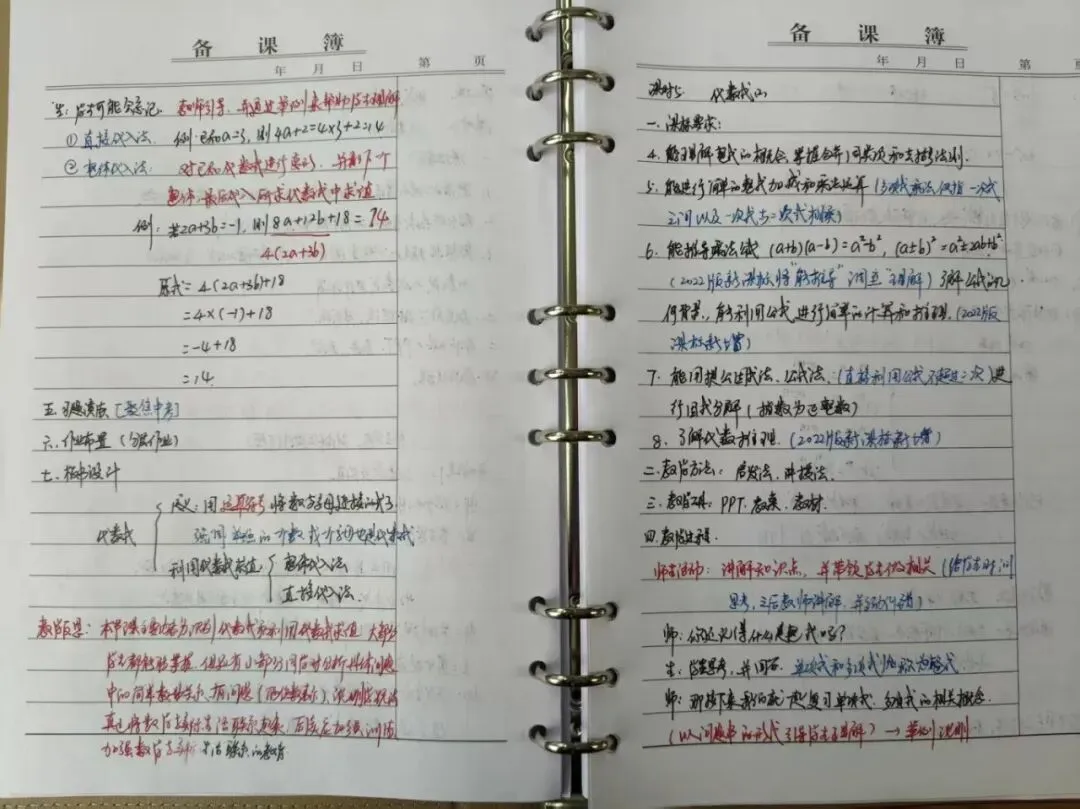 备课簿
年 月 日 第 页
生：学生可能会忘记. 教师引导，并通过举例来帮助学生理解
①直接代入法. 例：已知a=3，则4a+2=4×3+2=14
②整体代入法： 对已知代数式进行变形，并成一个
整体，最后代入所求代数式中求值
例：若2a+3b=-1，则8a+12b+18=14
4(2a+3b)
原式=4(2a+3b)+18
=4×(-1)+18
=-4+18
=14.
五.习题演练[聚焦中考]
六.作业布置（分层作业）
七.板书设计
代数式
定义：用运算符号将数与字母连接的式子
强调单独的一个数或一个字母也是代数式
利用代数式求值
整体代入法
直接代入法.
教学反思：本节课主要内容为识别代数式和利用代数式求值 大部分
学生都能够掌握，但还有小部分同学对分析具体问题
中的简单数量关系 有问题 说明
加强数学与生活联系的教育
备课簿
年 月 日 第 页
课时5 代数式(2)
一.课标要求：
4.能理解整式的概念，掌握合并同类项和去括号法则.
5.能进行简单的整式加减和乘法运算（多项式乘法仅指一次式
之间以及一次式与二次式相乘）
6.能推导乘法公式 (a+b)(a-b)=a²-b²，(a±b)²=a²±2ab+b²
（2022版新课标将“能推导”调至“理解”）了解公式的几
何背景，能利用公式进行简单的计算和推理.（2022版
课标新增）
7.能用提公因式法、公式法，（直接利用公式不超过二次）进
行因式分解（指数为正整数）
8.了解代数推理.（2022版新课标新增）
二.教学方法：启发法，讲授法.
三.教学工具：PPT.教案.教材.
四.教学过程：
师生活动：讲解知识点，并带领学生做相关（给学生时间
思考，之后教师讲解，并
师：你还记得什么是整式吗？
生：学生思考，并回答. 单项式和多项式统称为整式.
师：那接下来我们就一起复习单项式、多项式的相关概念.
（以问题串的形式引导学生理解）→举例说明